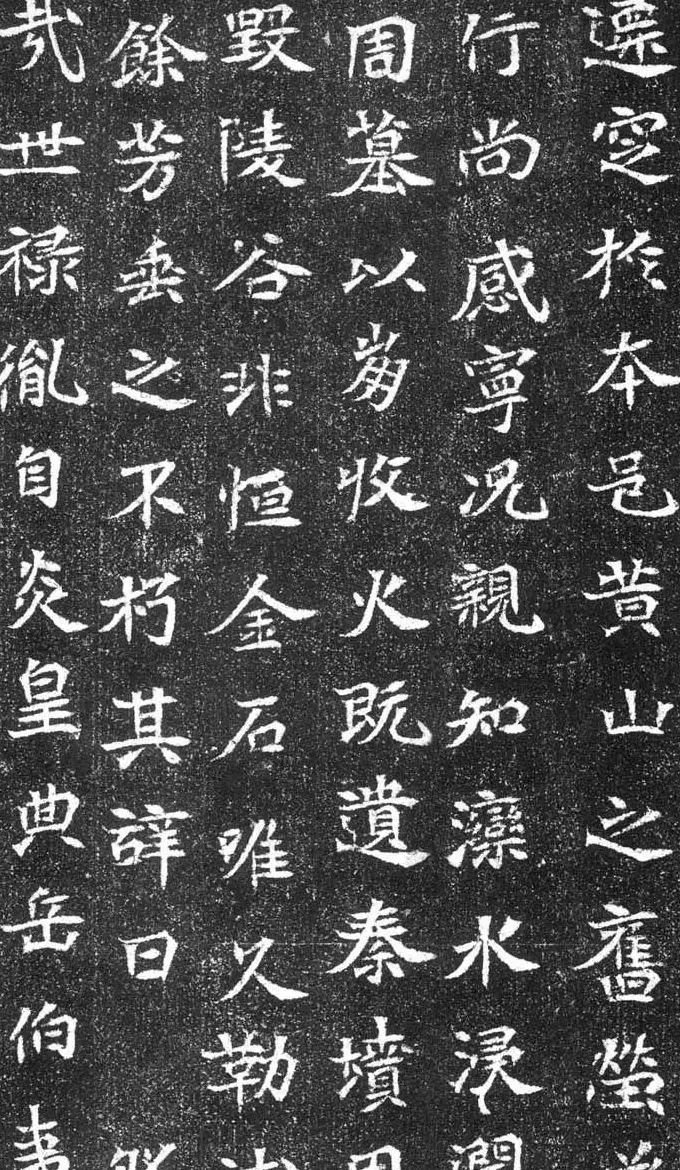 還窆於夲邑黃山之舊塋
行尚感寧況親知灓水浸
周墓以芻牧火既遺秦墳
毀陵谷非恒金石唯久勒
餘芳垂之不朽其辞曰
世禄胤自炎皇典岳伯夷